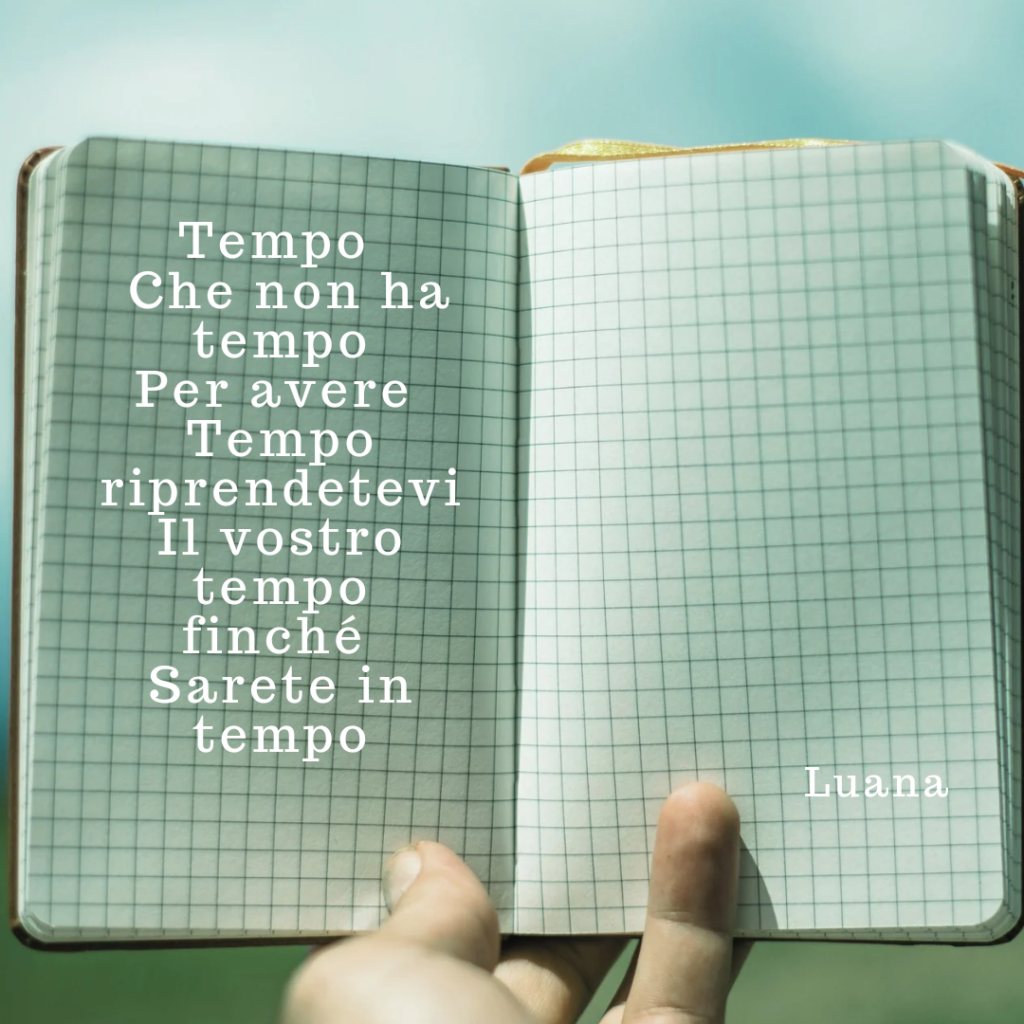 Tempo
Che non ha
tempo
Per avere
Tempo
riprendetevi
Il vostro
tempo
finché
Sarete in
tempo
Luana